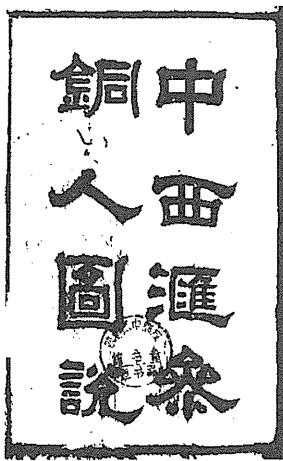 中西匯參
銅人圖說